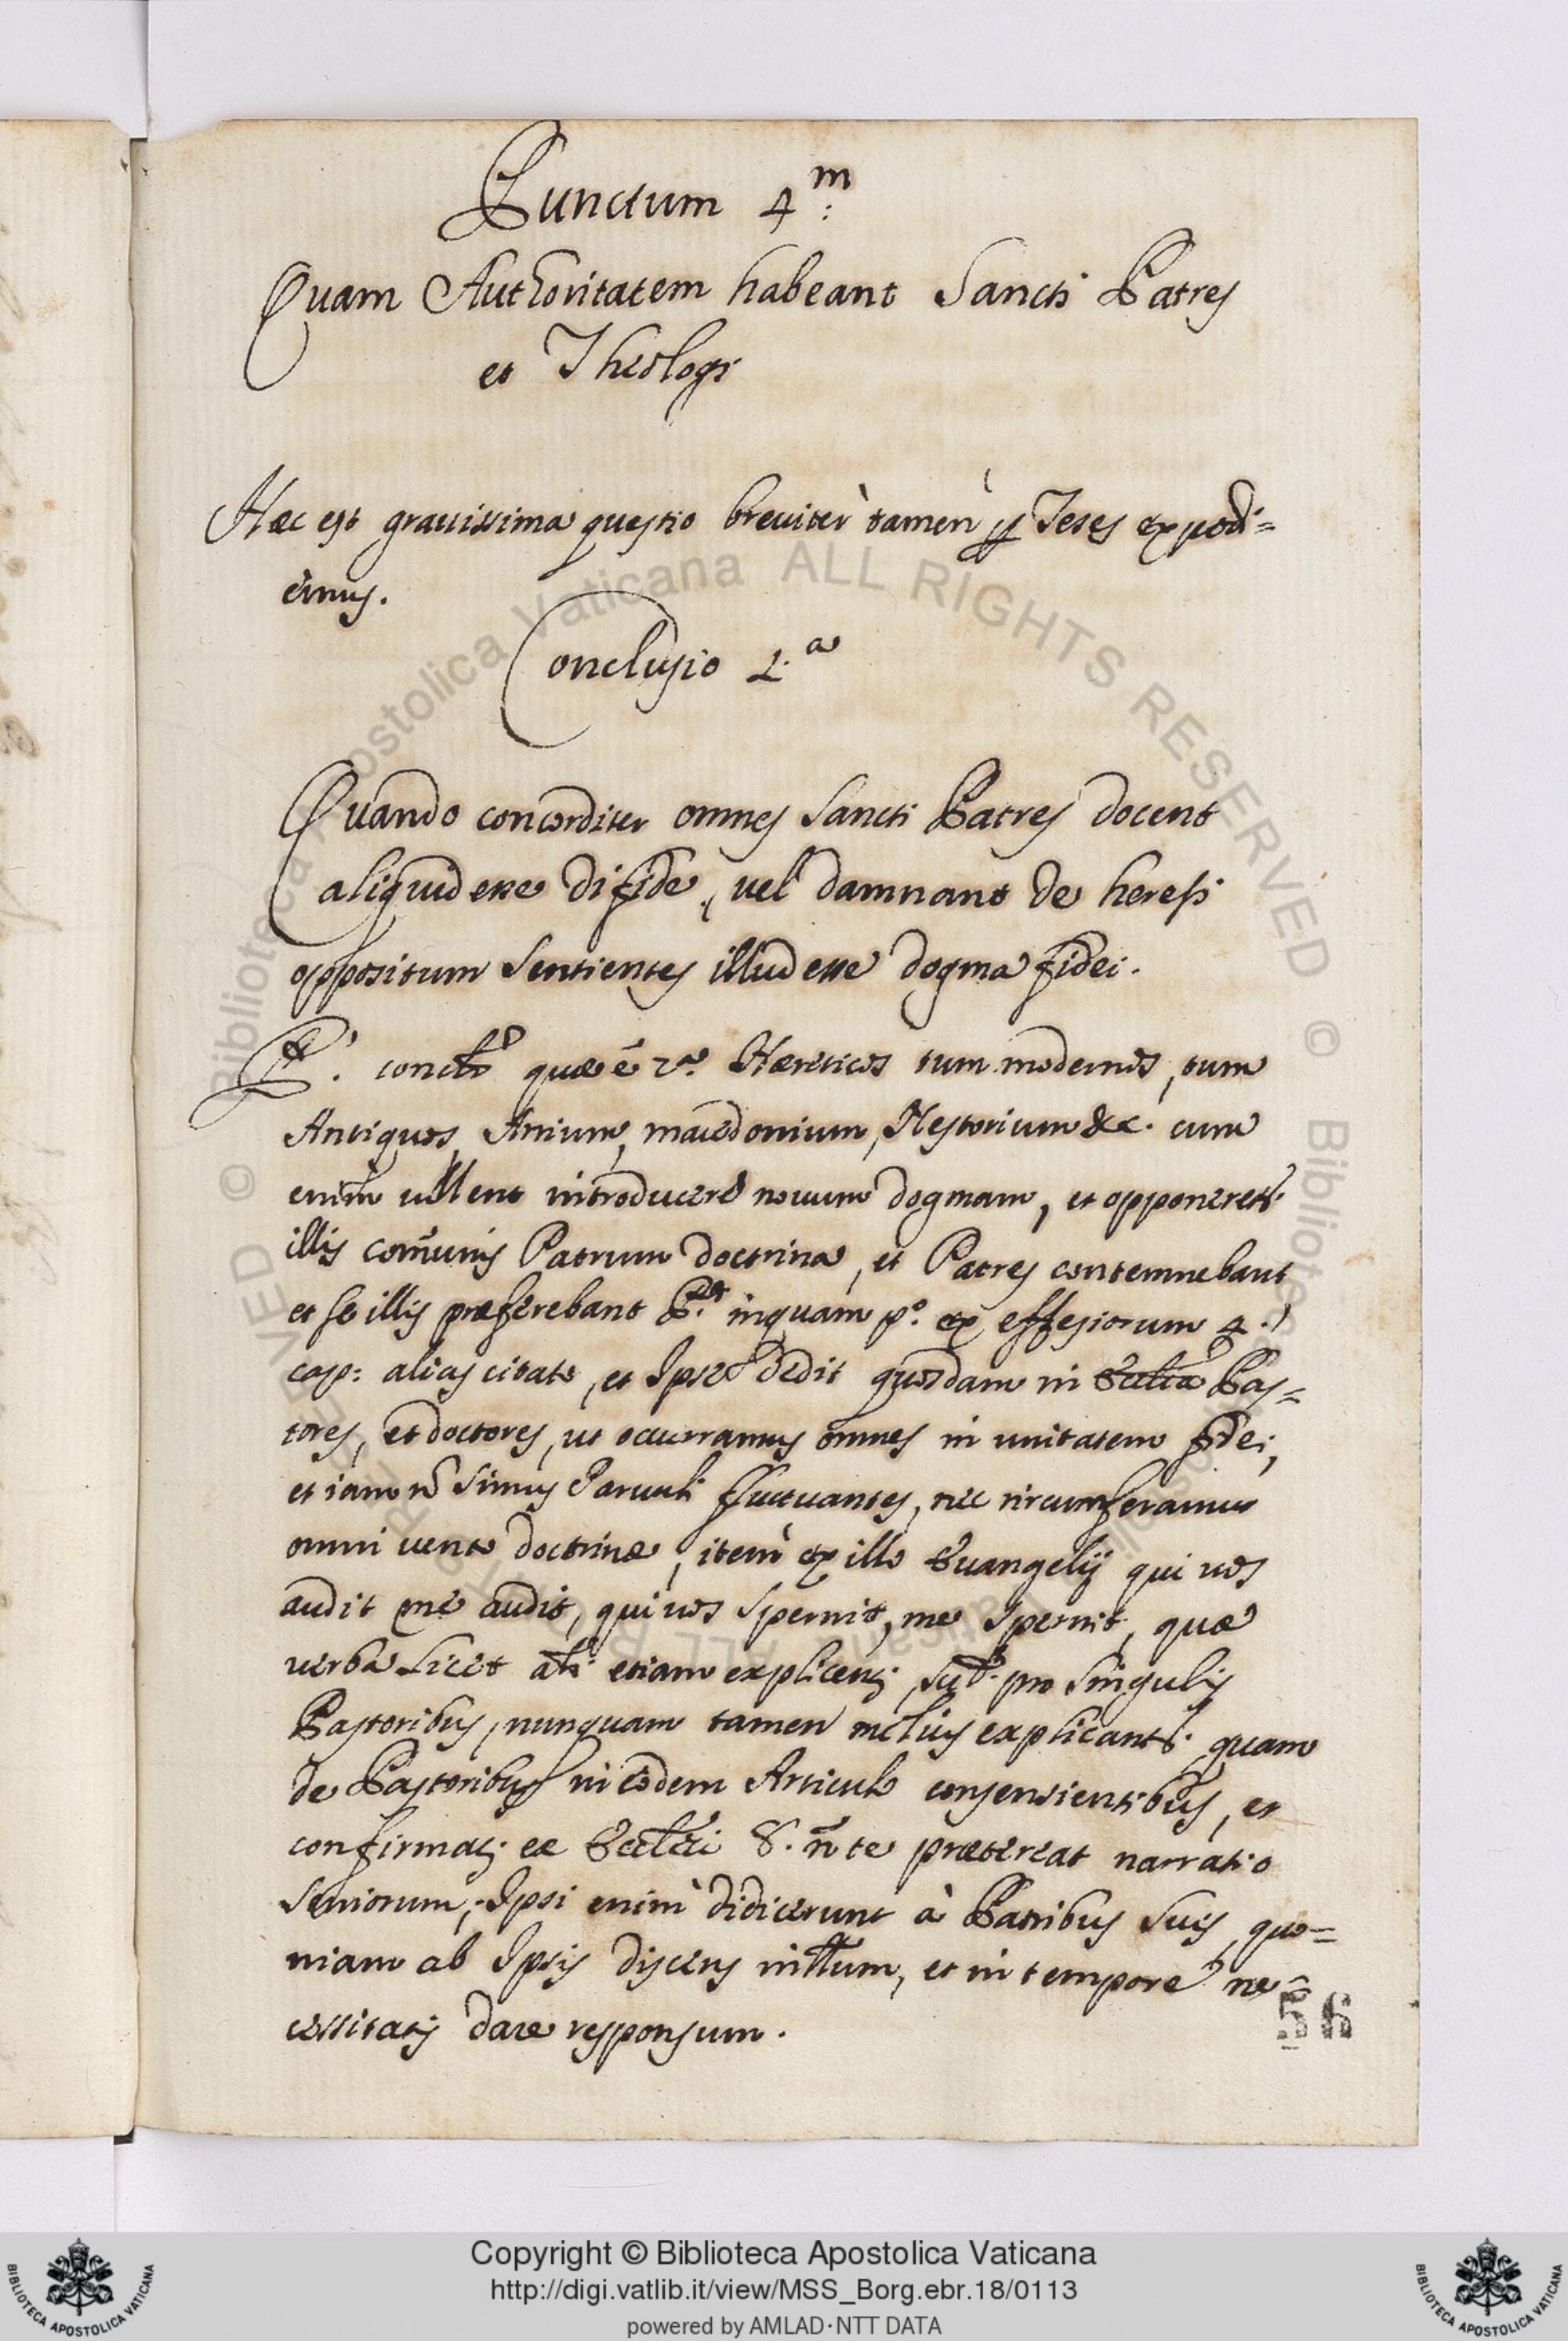 Punctum 4.m
Quam Authoritatem habeant Sancti Patres
et Theologi
Hæc est grauissima questio breuiter tamen per Teses expedi=
emus.
Conclusio 1.a
Quando concorditer omnes Sancti Patres docent
aliquid esse di fide, uel damnant de heresi
oppositum sentientes illud esse dogma fidei.
quæ ē Hæreticos tum modernos, tum
Antiquos, Arrium, macedonium, Nestorium &c. cum
enim uellent introducere nouum dogmam, et opponeretr
illis com̄unis Patrum doctrina, et Patres contemnebant
et se illis præferebant inquam pº. ex effesiorum 4.
cap: alias citato, et Ipse dedit quosdam in Pas=
tores, et doctores, ut occurramus omnes in unitatem fidei,
et iam nō simus Paruuli fluctuantes, nec circumferamur
omni uento doctrinæ, item ex illo Euangelij qui uos
audit me audit, qui uos spernit, me spernit, quæ
uerba licet etiam explicent pro singulis
Pastoribus, nunquam tamen melius explicantr quam
de Pastoribus in eodem Articulo consentientibus, et
ex 8. n̄ te prætereat narratio
seniorum, Ipsi enim didicerunt à Patribus suis, quo=
niam ab Ipsis disces et in tempore ne=
cessitatis dare responsum.
56
Biblioteca Apostolica Vaticana ALL RIGHTS RESERVED ©
Copyright © Biblioteca Apostolica Vaticana
http://digi.vatlib.it/view/MSS_Borg.ebr.18/0113
powered by AMLAD·NTT DATA
BIBLIOTECA APOSTOLICA VATICANA
BIBLIOTECA APOSTOLICA VATICANA